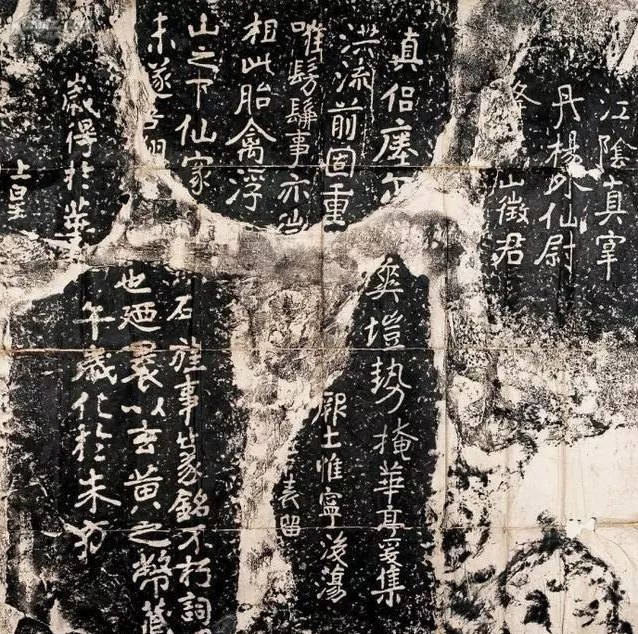 江陰真宰
丹楊外仙尉
山徵君
真侶瘞爾
洪流前固重
唯髣髴事亦
相此胎禽浮
山之下仙家
未遂吾翔
歲得於華
上皇
爽塏勢掩華亭爰集
厥土惟寧後蕩
表留
石旌事篆銘不朽詞
也迺裹以玄黃之幣藏
午歲化於朱方